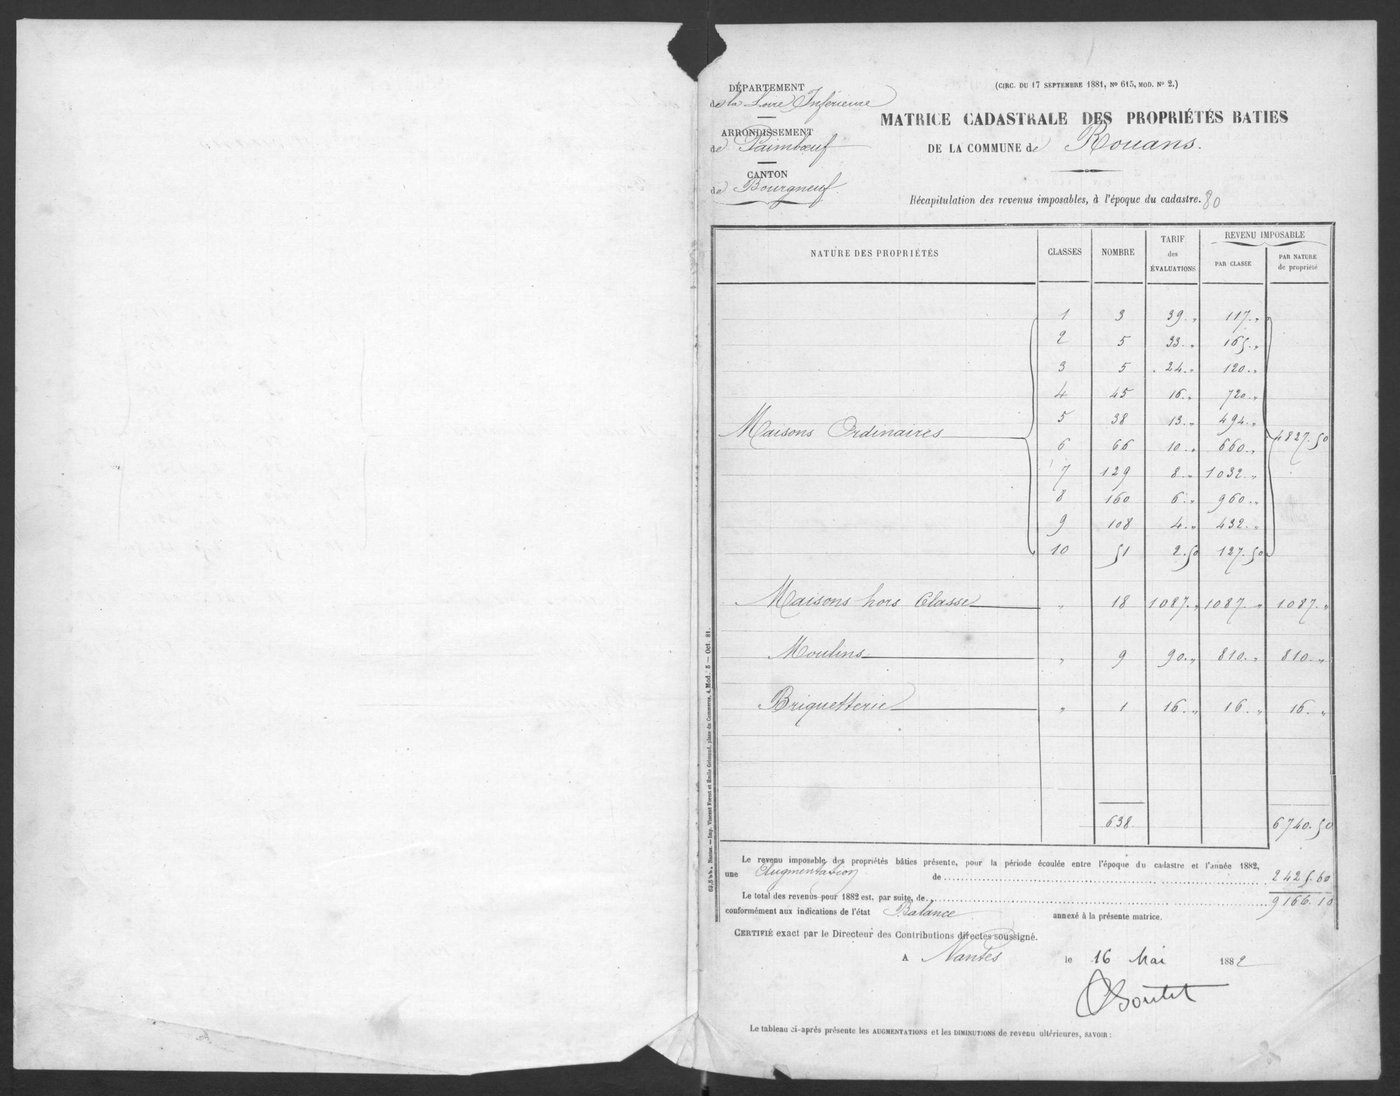 DÉPARTEMENT
de la Loire Inférieure
ARRONDISSEMENT
de Paimbœuf
CANTON
de Bourgneuf
(CIRC. DU 17 SEPTEMBRE 1881, No 615, MOD. No 2.)
MATRICE CADASTRALE DES PROPRIÉTÉS BATIES
DE LA COMMUNE de Rouans.
Récapitulation des revenus imposables, à l'époque du cadastre. 80
NATURE DES PROPRIÉTÉS CLASSES NOMBRE TARIF des ÉVALUATIONS REVENU IMPOSABLE PAR CLASSE PAR NATURE de propriété
1 3 39. „ 117. „
2 5 33. „ 165. „
3 5 24. „ 120. „
4 45 16. „ 720. „
5 38 13. „ 494. „
Maisons Ordinaires 4827.50
6 66 10. „ 660. „
7 129 8. „ 1032. „
8 160 6. „ 960. „
9 108 4. „ 432. „
10 51 2.50 127.50
Maisons hors Classe „ 18 1087. „ 1087. „ 1087. „
Moulins „ 9 90. „ 810. „ 810. „
Briquetterie „ 1 16. „ 16. „ 16. „
638 6740.50
Le revenu imposable des propriétés bâties présente, pour la période écoulée entre l'époque du cadastre et l'année 1882,
une Augmentation de 2425.60
Le total des revenus pour 1882 est, par suite, de 9166.10
conformément aux indications de l'état Balance annexé à la présente matrice.
CERTIFIÉ exact par le Directeur des Contributions directes soussigné.
A Nantes le 16 Mai 1882
Le tableau ci-après présente les AUGMENTATIONS et les DIMINUTIONS de revenu ultérieures, SAVOIR :
62,544. Nantes. — Imp. Vincent Forest et Emile Grimaud, place du Commerce, 4. Mod. 5 — Oct. 81.